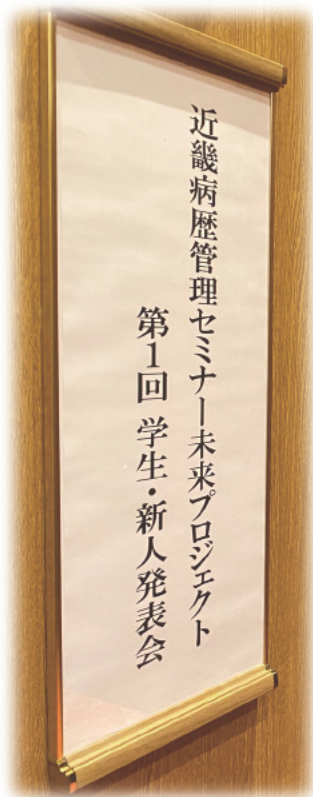 近畿病歴管理セミナー未来プロジェクト
第1回 学生・新人発表会